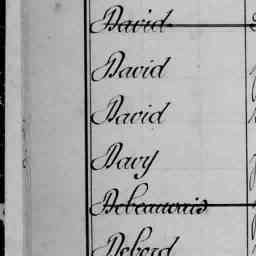 David
David
David
Davy
Debeauvais
Debord